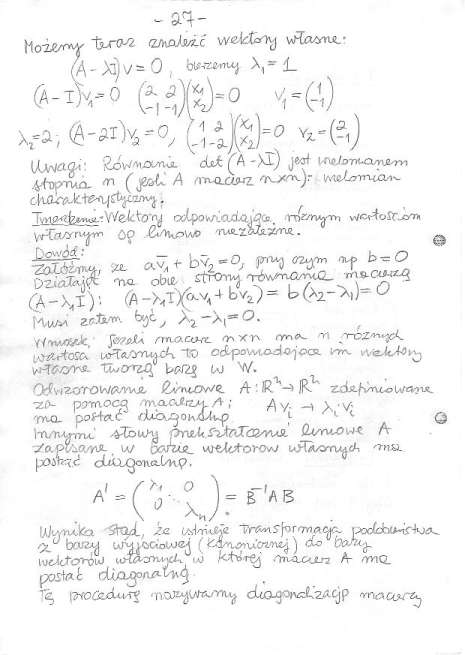 - 27 -
Możemy teraz znaleźć wektory własne:
(A - λI)v = 0, bierzemy λ₁ = 1
(A - I)v₁ = 0 (2 2 / -1 -1)(x₁ / x₂) = 0 v₁ = (1 / -1)
λ₂=2; (A-2I)v₂ = 0, (1 2 / -1 -2)(x₁ / x₂) = 0 v₂ = (2 / -1)
Uwagi: Równanie det(A - λI) jest wielomianem
stopnia n (jeśli A macierz n×n): wielomian
charakterystyczny.
Twierdzenie: Wektory odpowiadające różnym wartościom
własnym są liniowo niezależne.
Dowód:
Załóżmy, że av̄₁ + bv̄₂ = 0, przy czym np b = 0
Działając na obie strony równania macierzą
(A - λ₁I): (A - λ₁I)(av₁ + bv₂) = b(λ₂ - λ₁) = 0
Musi zatem być, λ₂ - λ₁ = 0.
Wniosek: Jeżeli macierz n×n ma n różnych
wartości własnych to odpowiadające im wektory
własne tworzą bazę w W.
Odwzorowanie liniowe A: ℝⁿ → ℝⁿ zdefiniowane
za pomocą macierzy A; Avᵢ → λᵢvᵢ
ma postać diagonalną
Innymi słowy przekształcenie liniowe A
zapisane w bazie wektorów własnych ma
postać diagonalną.
A' = (λ₁ 0 / 0 λₙ) = B⁻¹AB
Wynika stąd, że istnieje transformacja podobieństwa
z bazy wyjściowej (kanonicznej) do bazy
wektorów własnych w której macierz A ma
postać diagonalną.
Tę procedurę nazywamy diagonalizacją macierzy